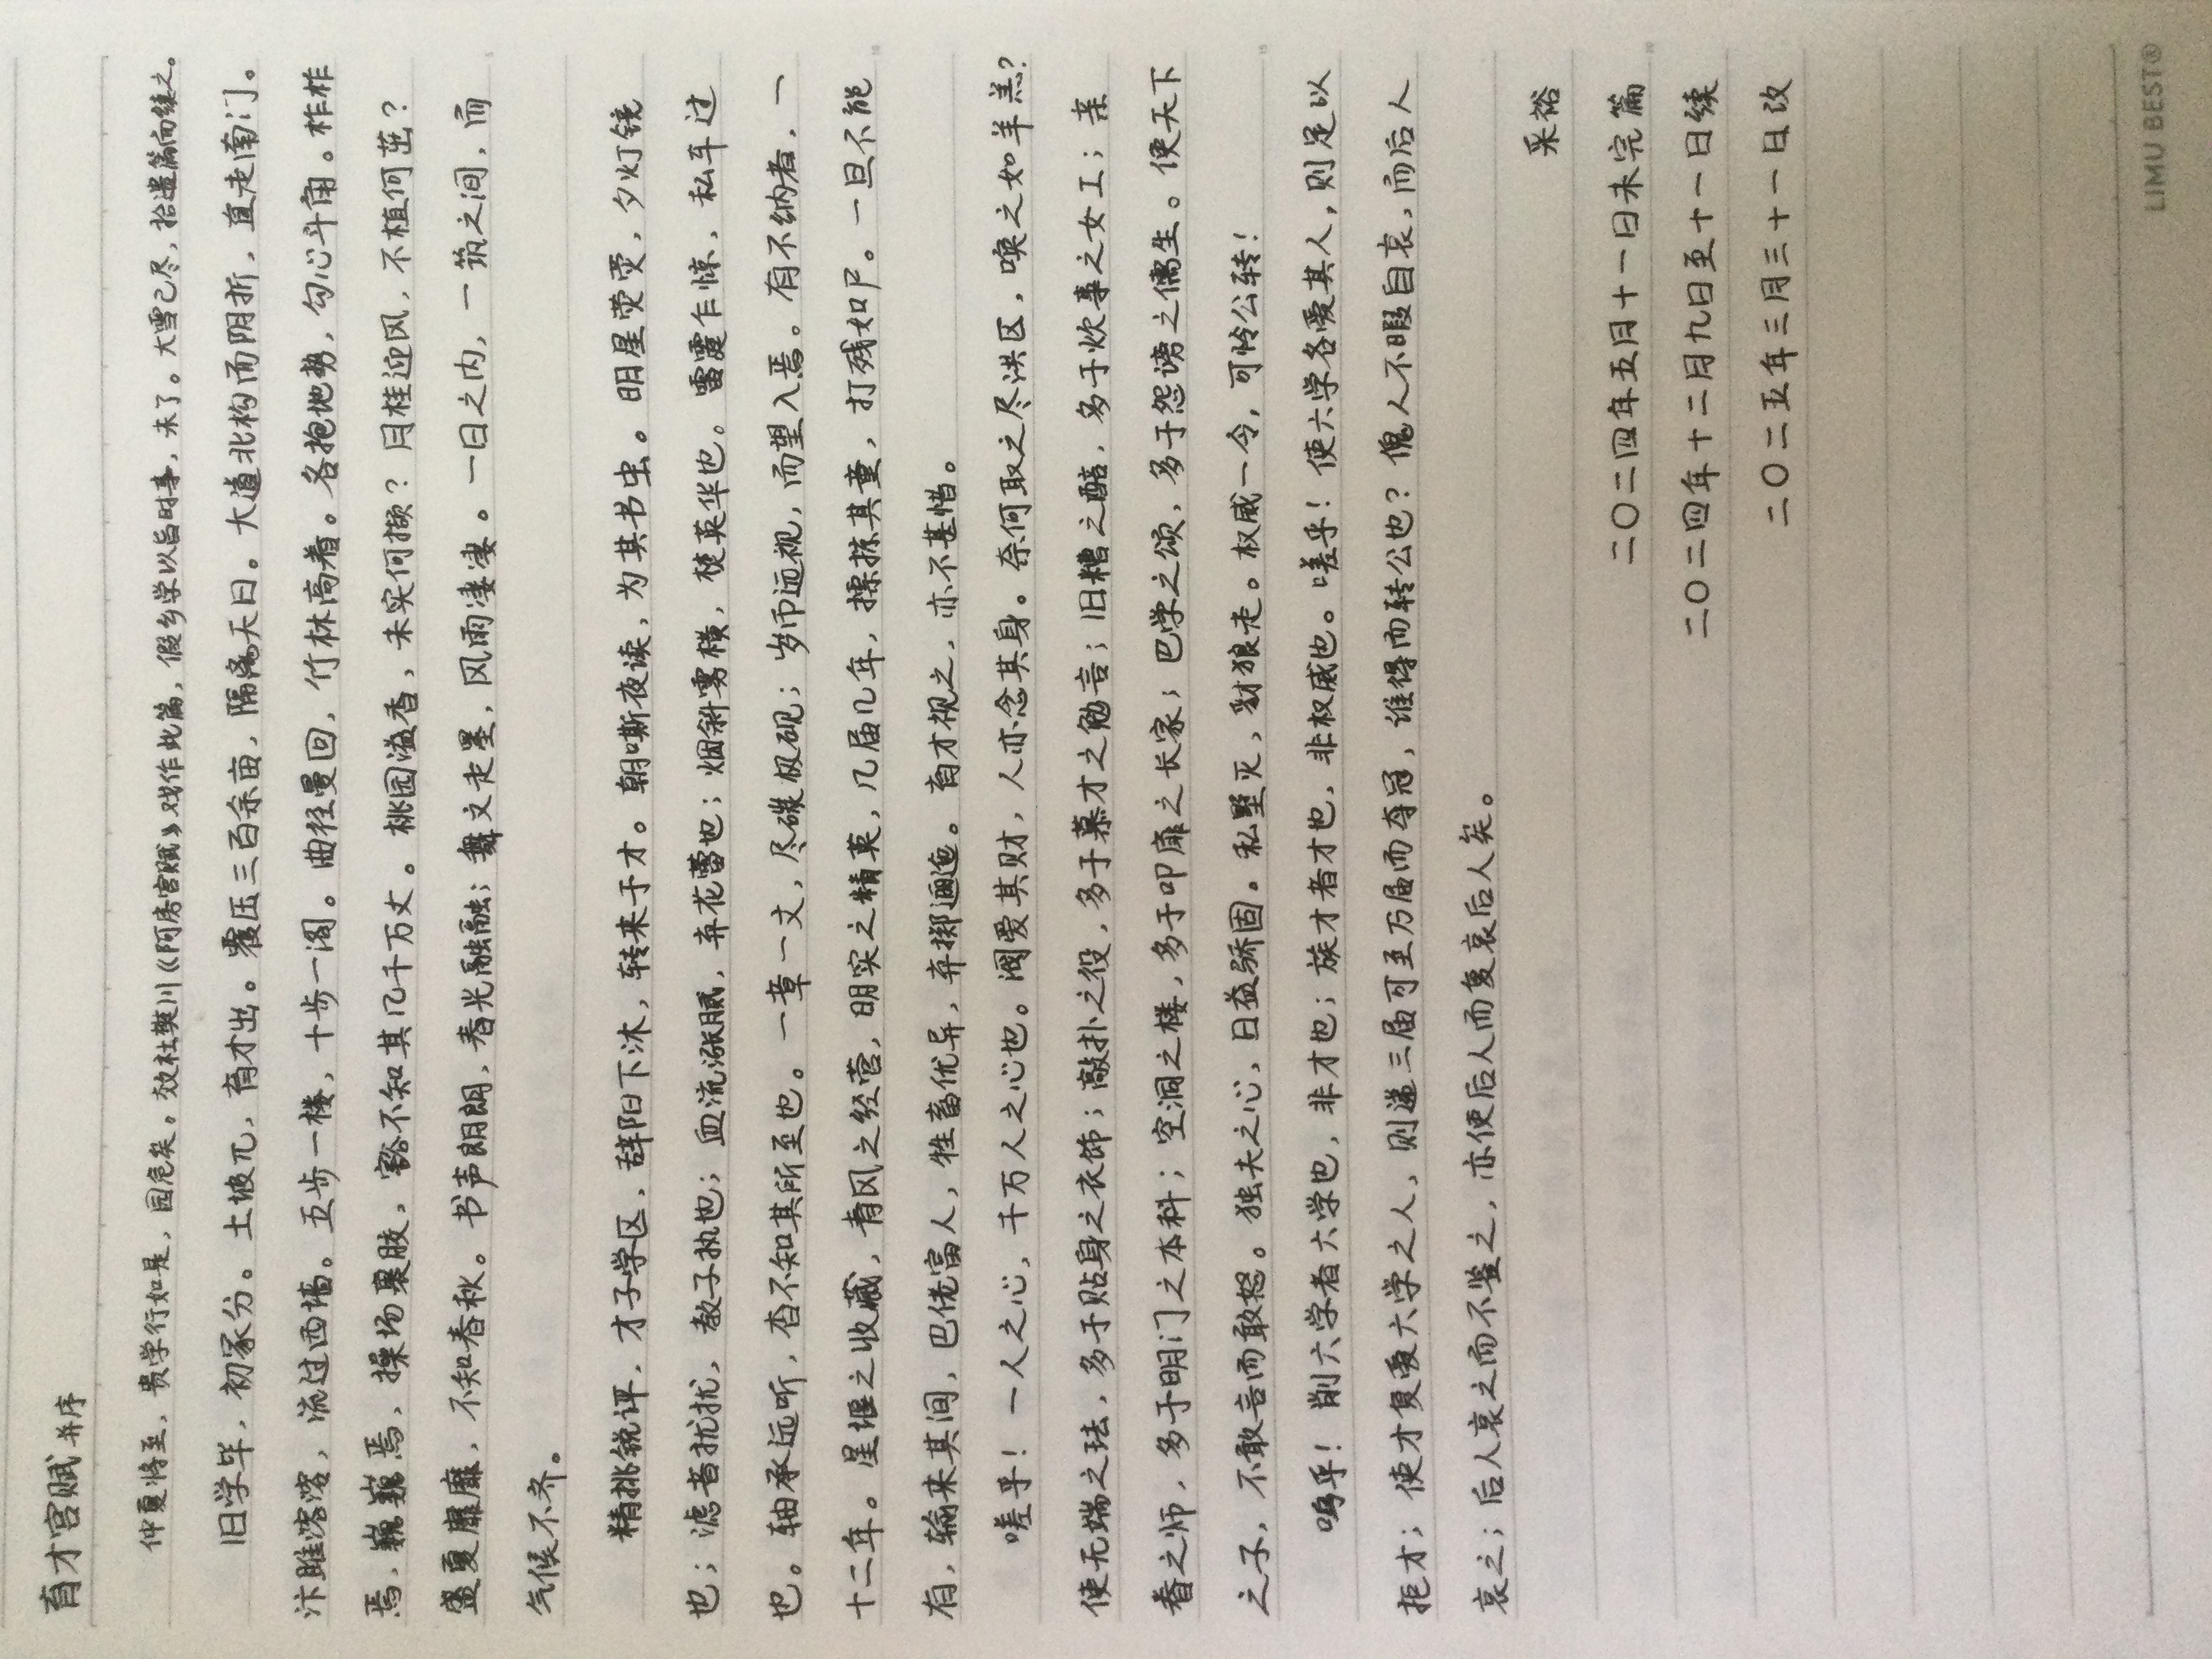 育才宫赋 并序
仲夏将至，贵学行如是，园危矣。效杜樊川《阿房宫赋》戏作此篇，假乡学以旨时事，未了。大雪已尽，拾遗篇而续之。
旧学毕，初冢分。土坡兀，育才出。覆压三百余亩，隔离天日。大道北构而阴折，直走南门。
汴雎溶溶，流过西墙。五步一楼，十步一阁。曲径曼回，竹林高着。各抱地势，勾心斗角。柞柞
焉，巍巍焉，操场裹胶，豁不知其几千万丈。桃园溢香，未实何撷？月桂迎风，不植何茁？
盛夏靡靡，不知春秋。书声朗朗，春光融融；舞文走墨，风雨凄凄。一日之内，一筑之间，而
气候不齐。
精挑锐评，才子学区，辞阳下沐，转来于才。朝嘶夜读，为其书虫。明星荧荧，夕灯镜
也；滤音扰扰，教子执也；血流涨腻，弃花蕾也；烟斜雾横，焚英华也。雷霆乍惊，私车过
也。轴承远听，杳不知其所至也。一章一文，尽碳极砚；岁币远视，而望入焉。有不纳者，一
十二年。星堰之收藏，青风之经营，明实之精英，几届几年，摽掠其童，打残如尸。一旦不能
有，输来其间，巴佬富人，牲畜优异，弃掷逦迤。育才视之，亦不甚惜。
嗟乎！一人之心，千万人之心也。阁爱其财，人亦念其身。奈何取之尽洪区，唤之如羊羔？
使无端之珐，多于贴身之衣饰；敲扑之役，多于慕才之勉言；旧糟之醅，多于炊事之女工；亲
眷之师，多于明门之本科；空洞之楼，多于叩扉之长家；巴学之颂，多于怨谤之儒生。使天下
之子，不敢言而敢怒。独夫之心，日益骄固。私墅灭，豺狼走。权威一令，可怜公转！
呜乎！削六学者六学也，非才也；族才者才也，非权威也。嗟乎！使六学各爱其人，则足以
拒才；使才复爱六学之人，则递三届可至万届而夺冠，谁得而转公也？傀人不暇自哀，而后人
哀之；后人哀之而不鉴之，亦使后人而复哀后人矣。
采裕
二〇二四年五月十一日未完篇
二〇二四年十二月九日至十一日续
二〇二五年三月三十一日改
LIMU BEST®